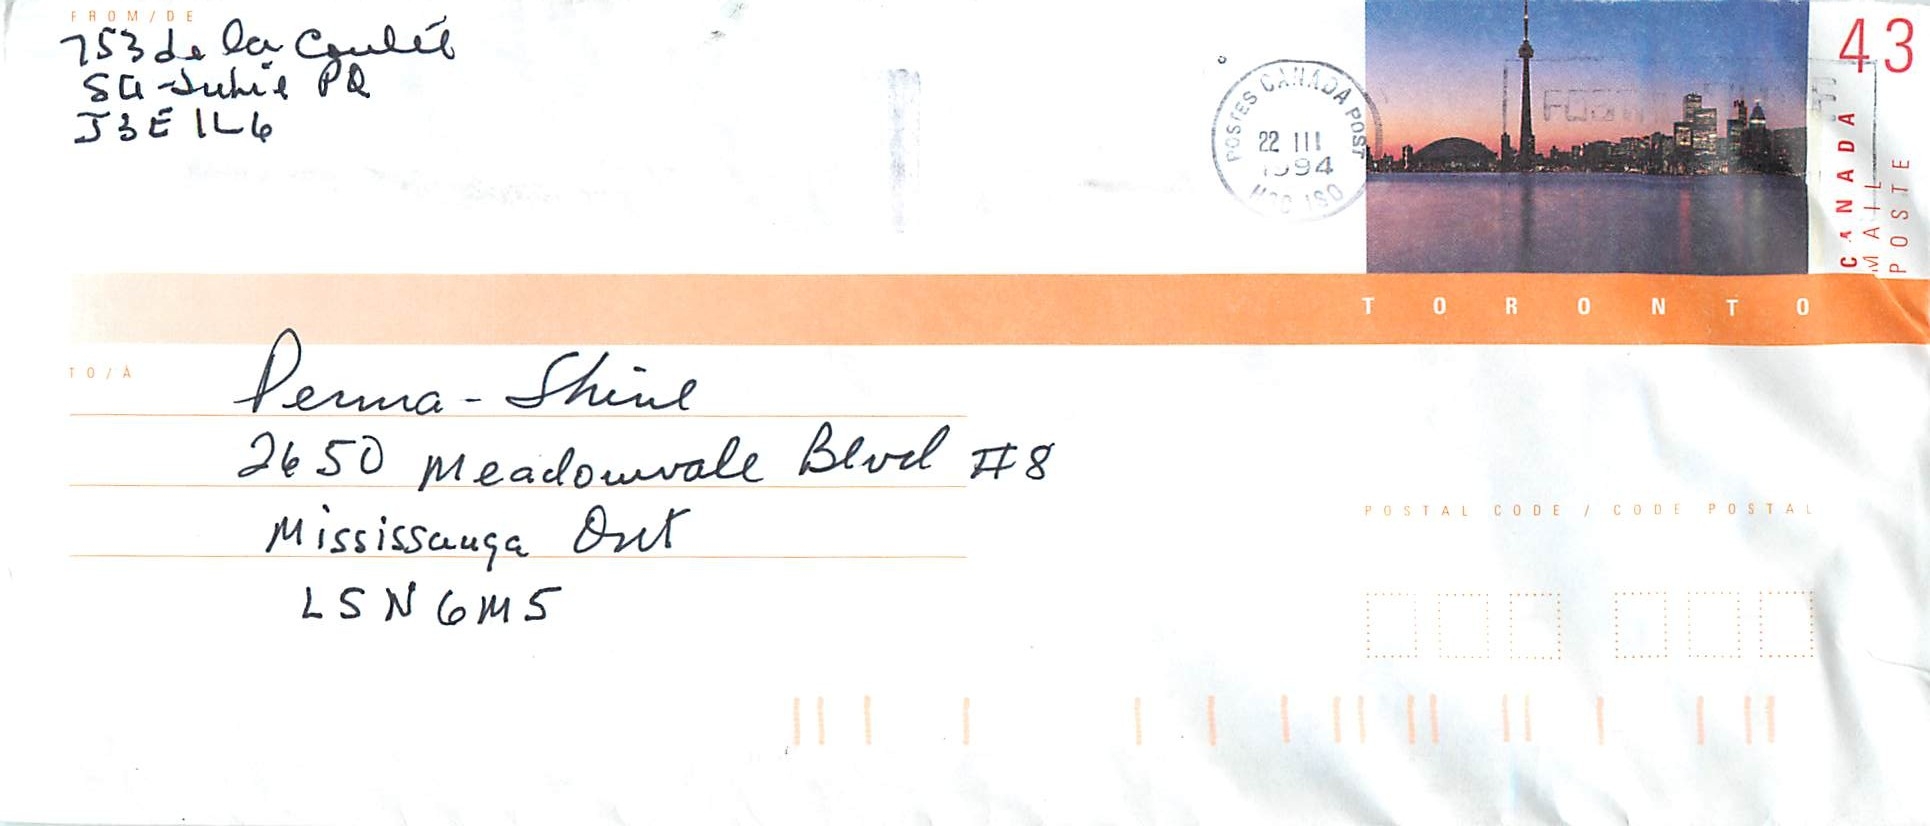 FROM/DE
753 de la Coulée
Ste-Julie PQ
J3E 1L6
POSTES CANADA POST
22 III
1994
43
CANADA
MAIL
POSTE
TORONTO
TO/À
Perma-Shine
2650 Meadowvale Blvd #8
Mississauga Ont
L5N 6M5
POSTAL CODE / CODE POSTAL